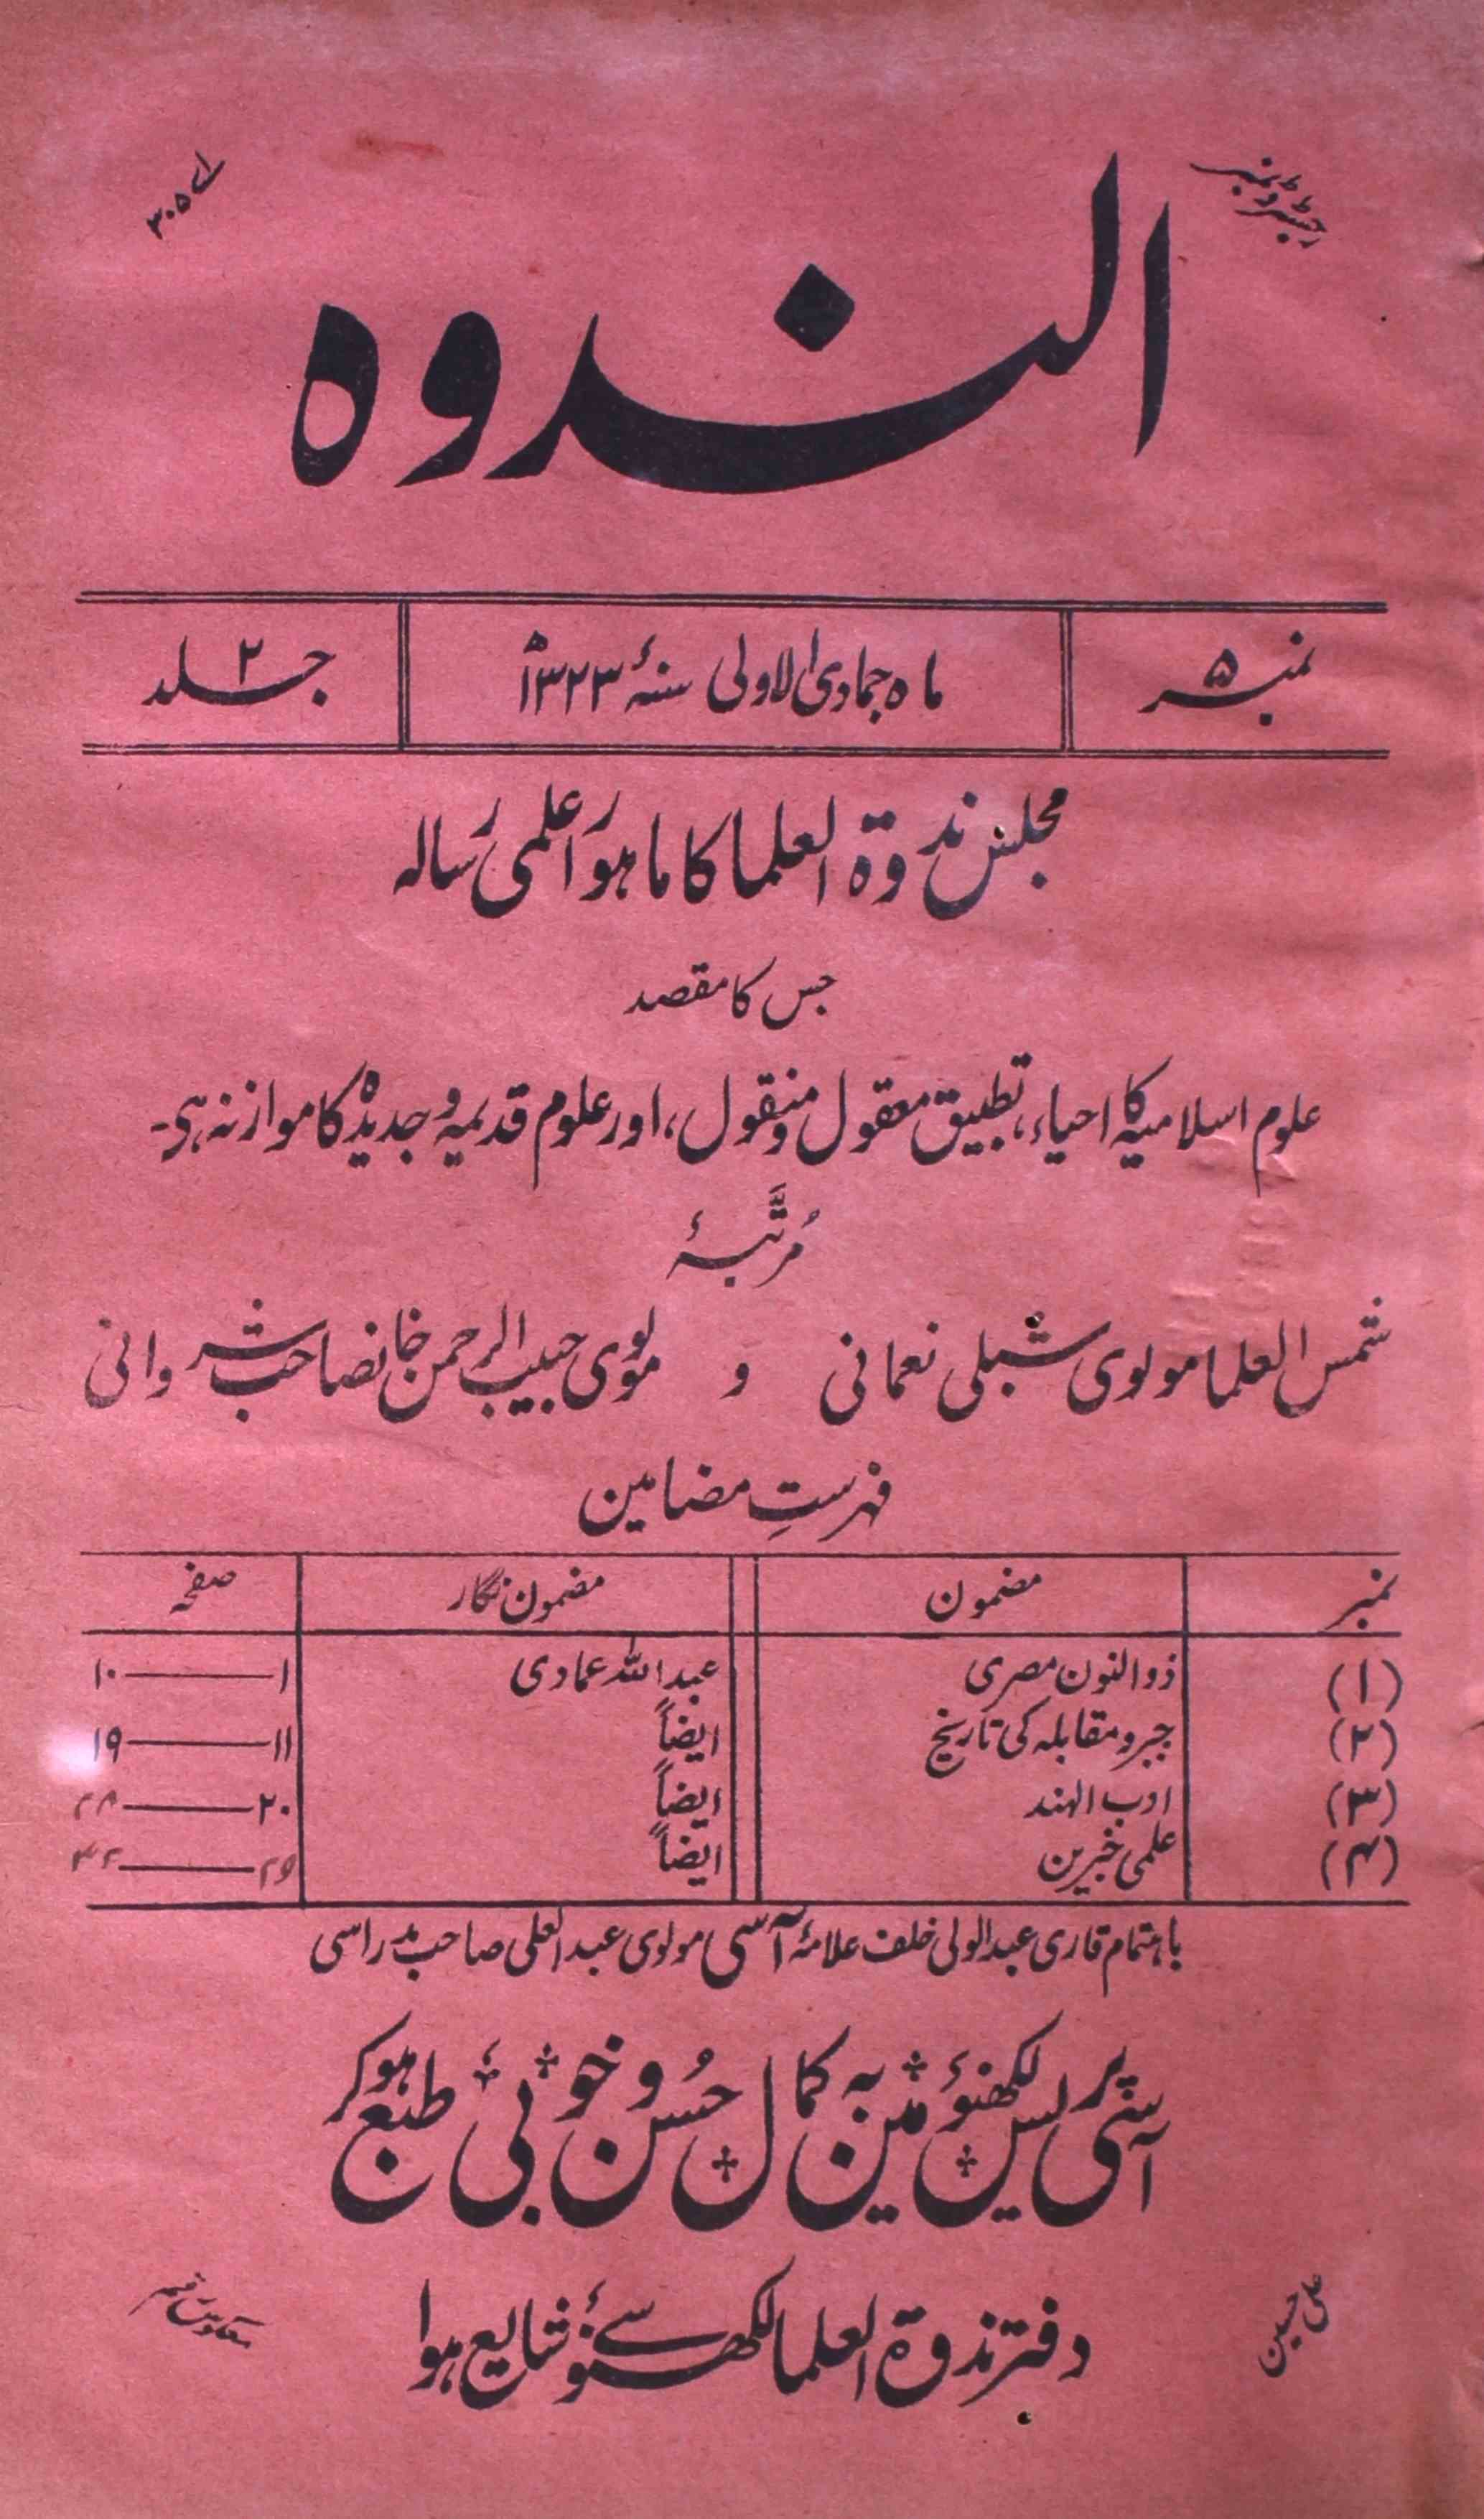 رجسٹرڈ نمبر
اے ۳۰۵
الندوہ
نمبر ۵
ماہ جمادی الاولی سنہ ۱۳۲۳ھ
جلد ۲
مجلس ندوۃ العلما کا ماہوار علمی رسالہ
جس کا مقصد
علوم اسلامیہ کا احیاء، تطبیق معقول و منقول، اور علوم قدیمہ و جدیدہ کا موازنہ ہی۔
مُرتَّبۂ
شمس العلما مولوی شبلی نعمانی و مولوی حبیب الرحمن خانصاحب شروانی
فہرستِ مضامین
نمبر مضمون مضمون نگار صفحہ
(۱) ذوالنون مصری عبداللہ عمادی ۱——۱۰
(۲) جبر و مقابلہ کی تاریخ ایضاً ۱۱——۱۹
(۳) ادب الہند ایضاً ۲۰——۲۸
(۴) علمی خبرین ایضاً ۲۹——
باہتمام قاری عبدالولی خلف علامۂ آسی مولوی عبدالعلی صاحب مدراسی
آسی پریس لکھنؤ مین بہ کمال حُسن و خوبی طبع ہوکر
دفتر ندوۃ العلما لکھنؤ سے شایع ہوا
علی حسین